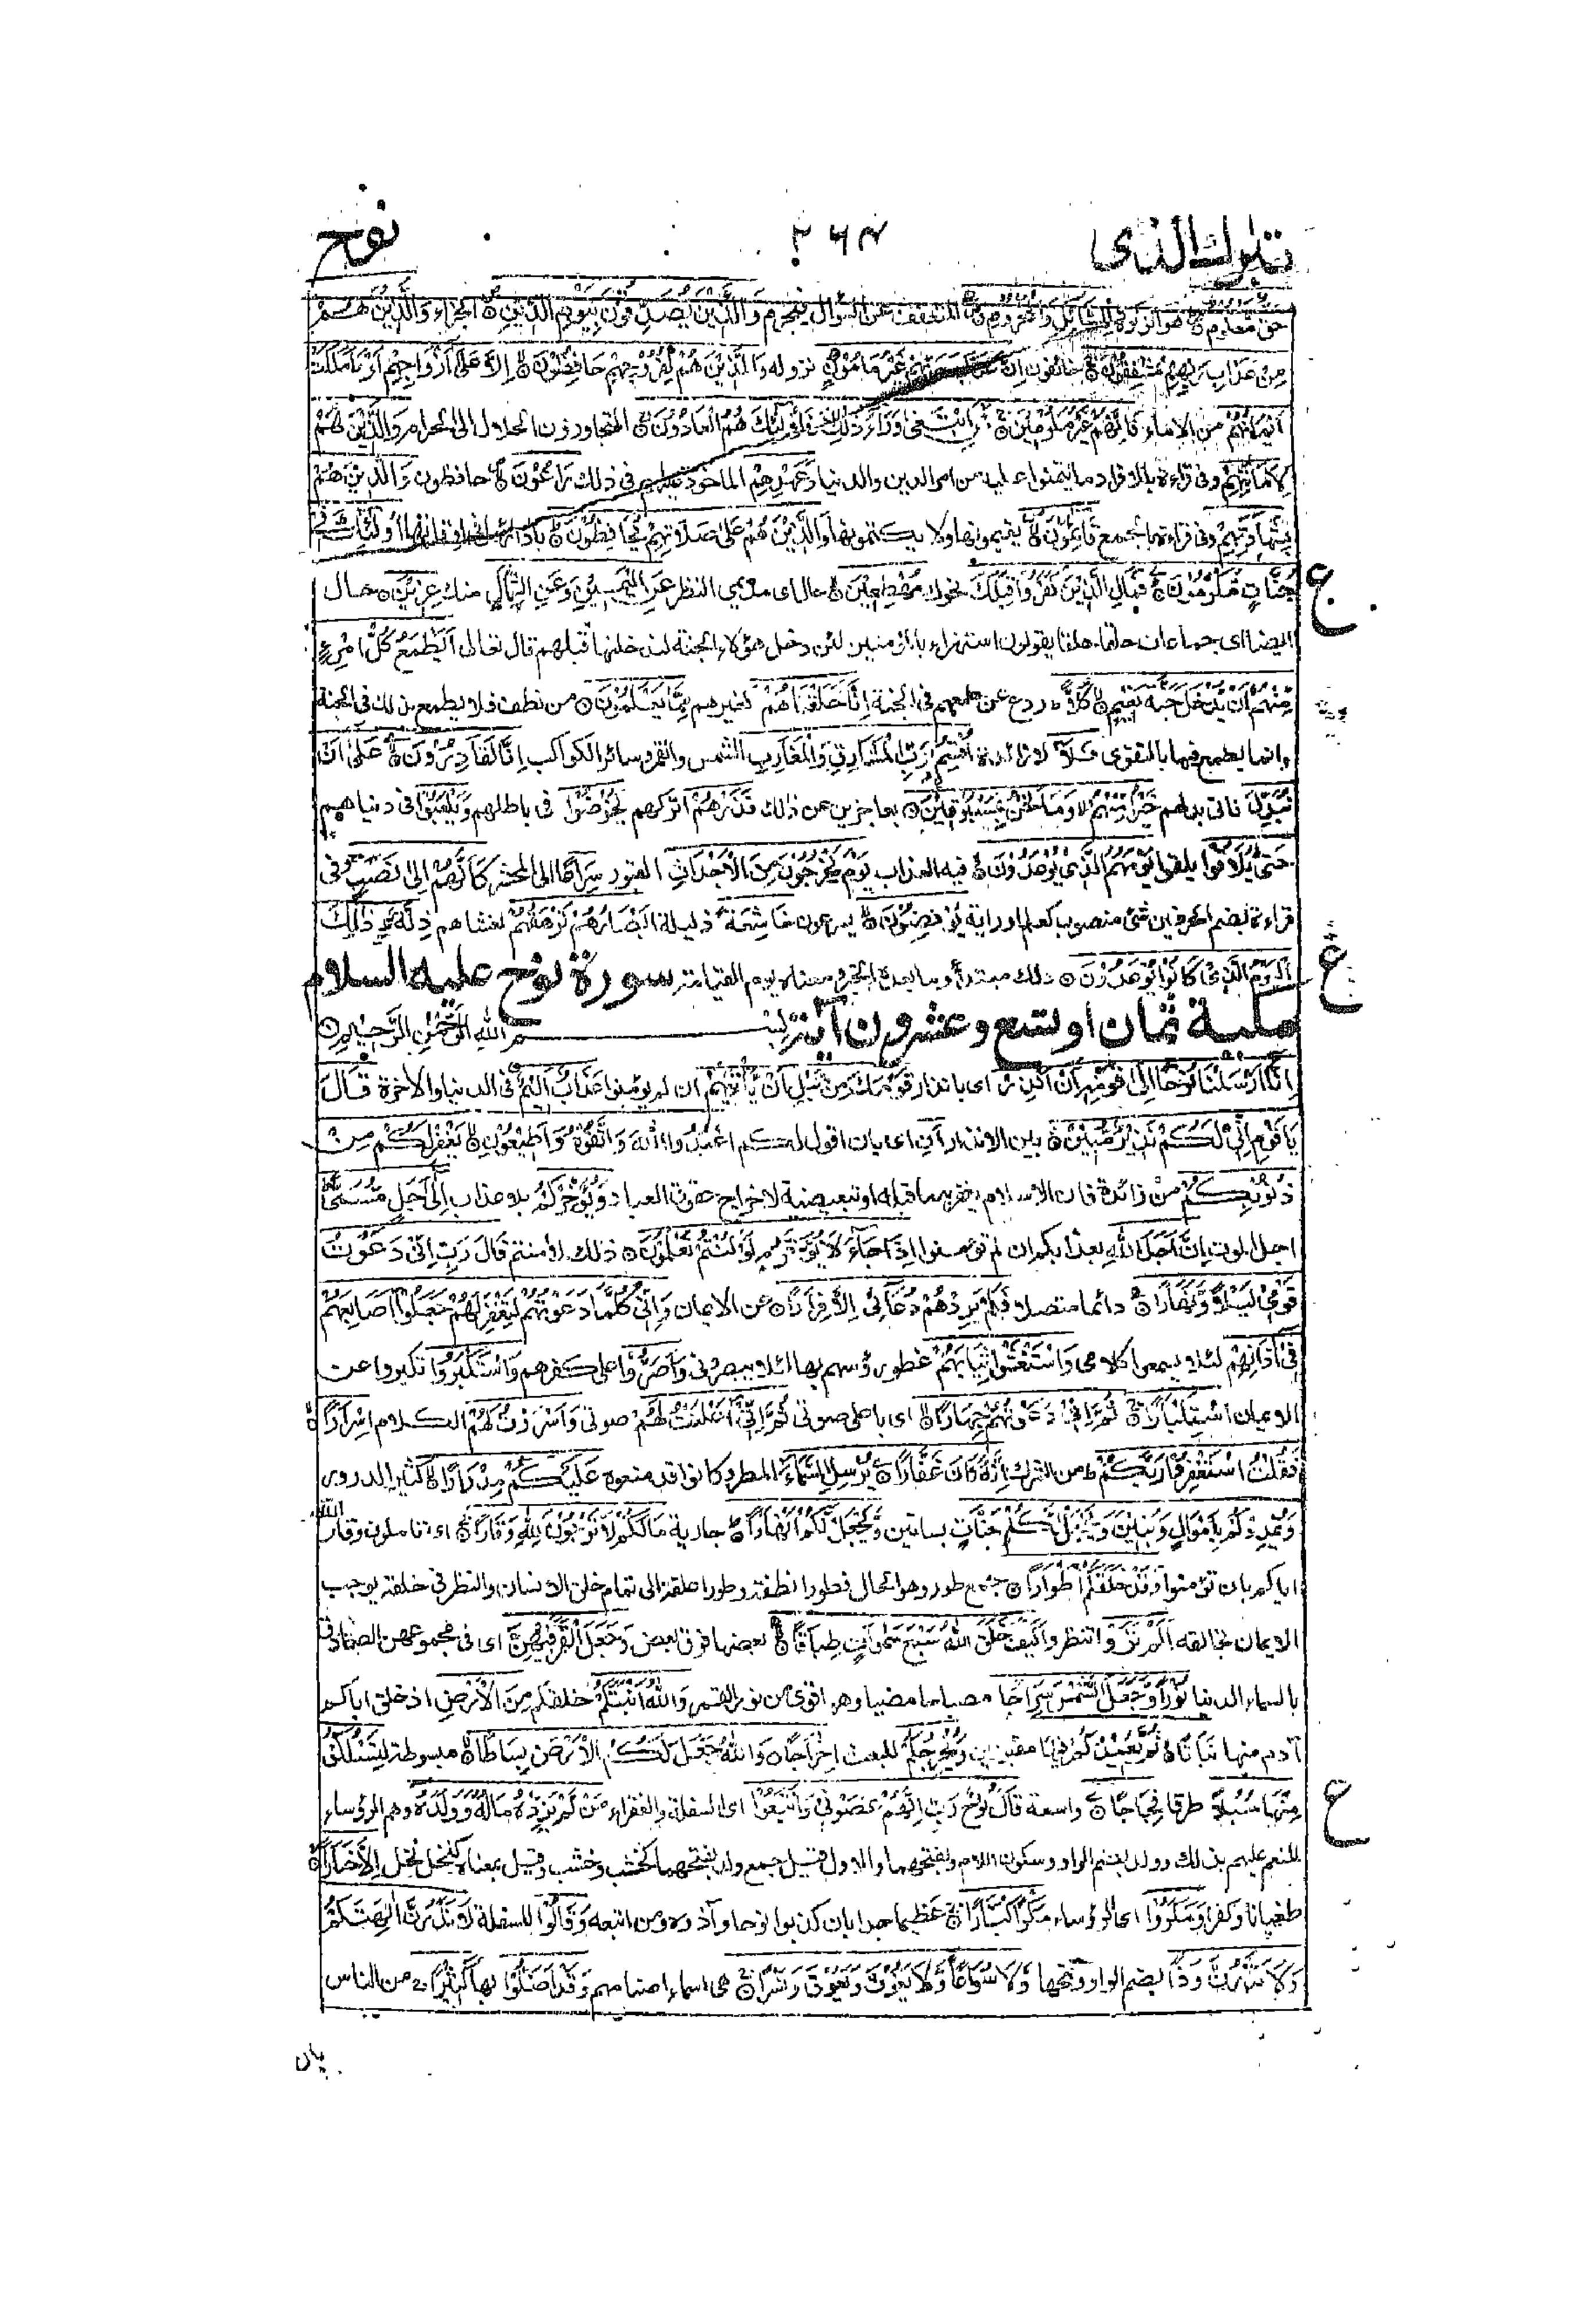 تبارك الذى
۲۶۴
نوح
حَقٌّ مَّعْلُوْمٌ هو الزكوة لِّلسَّآئِلِ وَالْمَحْرُوْمِ المتعفف عن السؤال فيحرم وَالَّذِيْنَ يُصَدِّقُوْنَ بِيَوْمِ الدِّيْنِ الجزاء وَالَّذِيْنَ هُمْ
مِنْ عَذَابِ رَبِّهِمْ مُشْفِقُوْنَ خائفون اِنَّ عَذَابَ رَبِّهِمْ غَيْرُ مَاْمُوْنٍ نزوله وَالَّذِيْنَ هُمْ لِفُرُوْجِهِمْ حَافِظُوْنَ اِلَّا عَلٰى اَزْوَاجِهِمْ اَوْ مَا مَلَكَتْ
اَيْمَانُهُمْ من الاماء فَاِنَّهُمْ غَيْرُ مَلُوْمِيْنَ فَمَنِ ابْتَغٰى وَرَآءَ ذٰلِكَ فَاُولٰٓئِكَ هُمُ الْعَادُوْنَ المتجاوزون الحلال الى الحرام وَالَّذِيْنَ هُمْ
لِاَمَانَاتِهِمْ وفى قراءة بالافراد ما ائتمنوا عليه من امر الدين والدنيا وَعَهْدِهِمْ الماخوذ عليهم فى ذلك رَاعُوْنَ حافظون وَالَّذِيْنَ هُمْ
بِشَهَادَتِهِمْ وفى قراءة بالجمع قَآئِمُوْنَ يقيمونها ولا يكتمونها وَالَّذِيْنَ هُمْ عَلٰى صَلَاتِهِمْ يُحَافِظُوْنَ بادائها فى اوقاتها اُولٰٓئِكَ فِىْ
جَنّٰتٍ مُّكْرَمُوْنَ فَمَالِ الَّذِيْنَ كَفَرُوْا قِبَلَكَ نحوك مُهْطِعِيْنَ حال اى مديمى النظر عَنِ الْيَمِيْنِ وَعَنِ الشِّمَالِ منك عِزِيْنَ حال
ايضا اى جماعات حلقا حلقا يقولون استهزاء بالمؤمنين لئن دخل هؤلاء الجنة لندخلنها قبلهم قال تعالى اَيَطْمَعُ كُلُّ امْرِئٍ
مِّنْهُمْ اَنْ يُّدْخَلَ جَنَّةَ نَعِيْمٍ كَلَّا ردع عن طمعهم فى الجنة اِنَّا خَلَقْنَاهُمْ كغيرهم مِّمَّا يَعْلَمُوْنَ من نطف فلا يطمع بذلك فى الجنة
وانما يطمع فيها بالتقوى فَلَآ لا زائدة اُقْسِمُ بِرَبِّ الْمَشَارِقِ وَالْمَغَارِبِ الشمس والقمر وسائر الكواكب اِنَّا لَقَادِرُوْنَ عَلٰى اَنْ
نُّبَدِّلَ ناتى بدلهم خَيْرًا مِّنْهُمْ وَمَا نَحْنُ بِمَسْبُوْقِيْنَ بعاجزين عن ذلك فَذَرْهُمْ اتركهم يَخُوْضُوْا فى باطلهم وَيَلْعَبُوْا فى دنياهم
حَتّٰى يُلَاقُوْا يلقوا يَوْمَهُمُ الَّذِىْ يُوْعَدُوْنَ فيه العذاب يَوْمَ يَخْرُجُوْنَ مِنَ الْاَجْدَاثِ القبور سِرَاعًا الى المحشر كَاَنَّهُمْ اِلٰى نَصْبٍ وفى
قراءة بضم الحرفين شئ منصوب كعلم او راية يُوْفِضُوْنَ يسرعون خَاشِعَةً ذليلة اَبْصَارُهُمْ تَرْهَقُهُمْ تغشاهم ذِلَّةٌ ذٰلِكَ
الْيَوْمُ الَّذِىْ كَانُوْا يُوْعَدُوْنَ ذلك مبتدأ وما بعده الخبر ومعناه يوم القيامة سورة نوح عليه السلام
مكية ثمان او تسع وعشرون آية بسم الله الرَّحْمٰنِ الرَّحِيْمِ
اِنَّآ اَرْسَلْنَا نُوْحًا اِلٰى قَوْمِهٖ اَنْ اَنْذِرْ اى بانذار قَوْمَكَ مِنْ قَبْلِ اَنْ يَّاْتِيَهُمْ ان لم يؤمنوا عَذَابٌ اَلِيْمٌ فى الدنيا والآخرة قَالَ
يَا قَوْمِ اِنِّىْ لَكُمْ نَذِيْرٌ مُّبِيْنٌ بين الانذار اَنِ اى بان اقول لكم اعْبُدُوا اللّٰهَ وَاتَّقُوْهُ وَاَطِيْعُوْنِ يَغْفِرْ لَكُمْ مِنْ
ذُنُوْبِكُمْ من زائدة فان الاسلام يغفر به ما قبله او تبعيضية لاخراج حقوق العباد وَيُؤَخِّرْكُمْ بلا عذاب اِلٰى اَجَلٍ مُّسَمًّى
اجل الموت اِنَّ اَجَلَ اللّٰهِ بعذابكم ان لم تؤمنوا اِذَا جَآءَ لَا يُؤَخَّرُ لَوْ كُنْتُمْ تَعْلَمُوْنَ ذلك لآمنتم قَالَ رَبِّ اِنِّىْ دَعَوْتُ
قَوْمِىْ لَيْلًا وَّنَهَارًا دائما متصلا فَلَمْ يَزِدْهُمْ دُعَآئِىْ اِلَّا فِرَارًا عن الايمان وَاِنِّىْ كُلَّمَا دَعَوْتُهُمْ لِتَغْفِرَ لَهُمْ جَعَلُوْٓا اَصَابِعَهُمْ
فِىْٓ اٰذَانِهِمْ لئلا يسمعوا كلامى وَاسْتَغْشَوْا ثِيَابَهُمْ غطوا رؤسهم بها لئلا يبصرونى وَاَصَرُّوْا على كفرهم وَاسْتَكْبَرُوْا تكبروا عن
الايمان اسْتِكْبَارًا ثُمَّ اِنِّىْ دَعَوْتُهُمْ جِهَارًا اى باعلى صوتى ثُمَّ اِنِّىْٓ اَعْلَنْتُ لَهُمْ صوتى وَاَسْرَرْتُ لَهُمْ الكلام اِسْرَارًا
فَقُلْتُ اسْتَغْفِرُوْا رَبَّكُمْ من الشرك اِنَّهٗ كَانَ غَفَّارًا يُرْسِلِ السَّمَآءَ المطر وكانوا قد منعوه عَلَيْكُمْ مِدْرَارًا كثير الدرور
وَيُمْدِدْكُمْ بِاَمْوَالٍ وَّبَنِيْنَ وَيَجْعَلْ لَّكُمْ جَنّٰتٍ بساتين وَّيَجْعَلْ لَّكُمْ اَنْهَارًا جارية مَا لَكُمْ لَا تَرْجُوْنَ لِلّٰهِ وَقَارًا اى تاملون وقار الله
اياكم بان تؤمنوا وَقَدْ خَلَقَكُمْ اَطْوَارًا جمع طور وهو الحال فطورا نطفة وطورا علقة الى تمام خلق الانسان والنظر فى خلقه يوجب
الايمان بخالقه اَلَمْ تَرَوْا تنظروا كَيْفَ خَلَقَ اللّٰهُ سَبْعَ سَمٰوَاتٍ طِبَاقًا بعضها فوق بعض وَجَعَلَ الْقَمَرَ فِيْهِنَّ اى فى مجموعهن الصادق
بالسماء الدنيا نُوْرًا وَّجَعَلَ الشَّمْسَ سِرَاجًا مصباحا مضيا وهو اقوى من نور القمر وَاللّٰهُ اَنْبَتَكُمْ خلقكم مِنَ الْاَرْضِ اذ خلق اباكم
آدم منها نَبَاتًا ثُمَّ يُعِيْدُكُمْ فِيْهَا مقبورين وَيُخْرِجُكُمْ للبعث اِخْرَاجًا وَاللّٰهُ جَعَلَ لَكُمُ الْاَرْضَ بِسَاطًا مبسوطة لِتَسْلُكُوْا
مِنْهَا سُبُلًا طرقا فِجَاجًا واسعة قَالَ نُوْحٌ رَبِّ اِنَّهُمْ عَصَوْنِىْ وَاتَّبَعُوْا اى السفلة والفقراء مَنْ لَّمْ يَزِدْهُ مَالُهٗ وَوَلَدُهٗ وهم الرؤساء
المنعم عليهم بذلك وولد بضم الواو وسكون اللام وبفتحهما والاول قيل جمع ولد بفتحهما كخشب وخشب وقيل بمعناه كبخل وبخل اِلَّا خَسَارًا
طغيانا وكفرا وَمَكَرُوْا اى الرؤساء مَكْرًا كُبَّارًا عظيما جدا بان كذبوا نوحا وآذوه ومن اتبعه وَقَالُوْا للسفلة لَا تَذَرُنَّ اٰلِهَتَكُمْ
وَلَا تَذَرُنَّ وَدًّا بضم الواو وفتحها وَلَا سُوَاعًا وَّلَا يَغُوْثَ وَيَعُوْقَ وَنَسْرًا هى اسماء اصنامهم وَقَدْ اَضَلُّوْا بها كَثِيْرًا من الناس
بان
ع
ع
ع